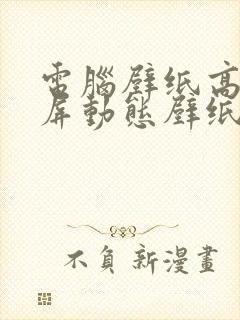 電腦壁纸高
屏動態壁纸
不負新漫畫